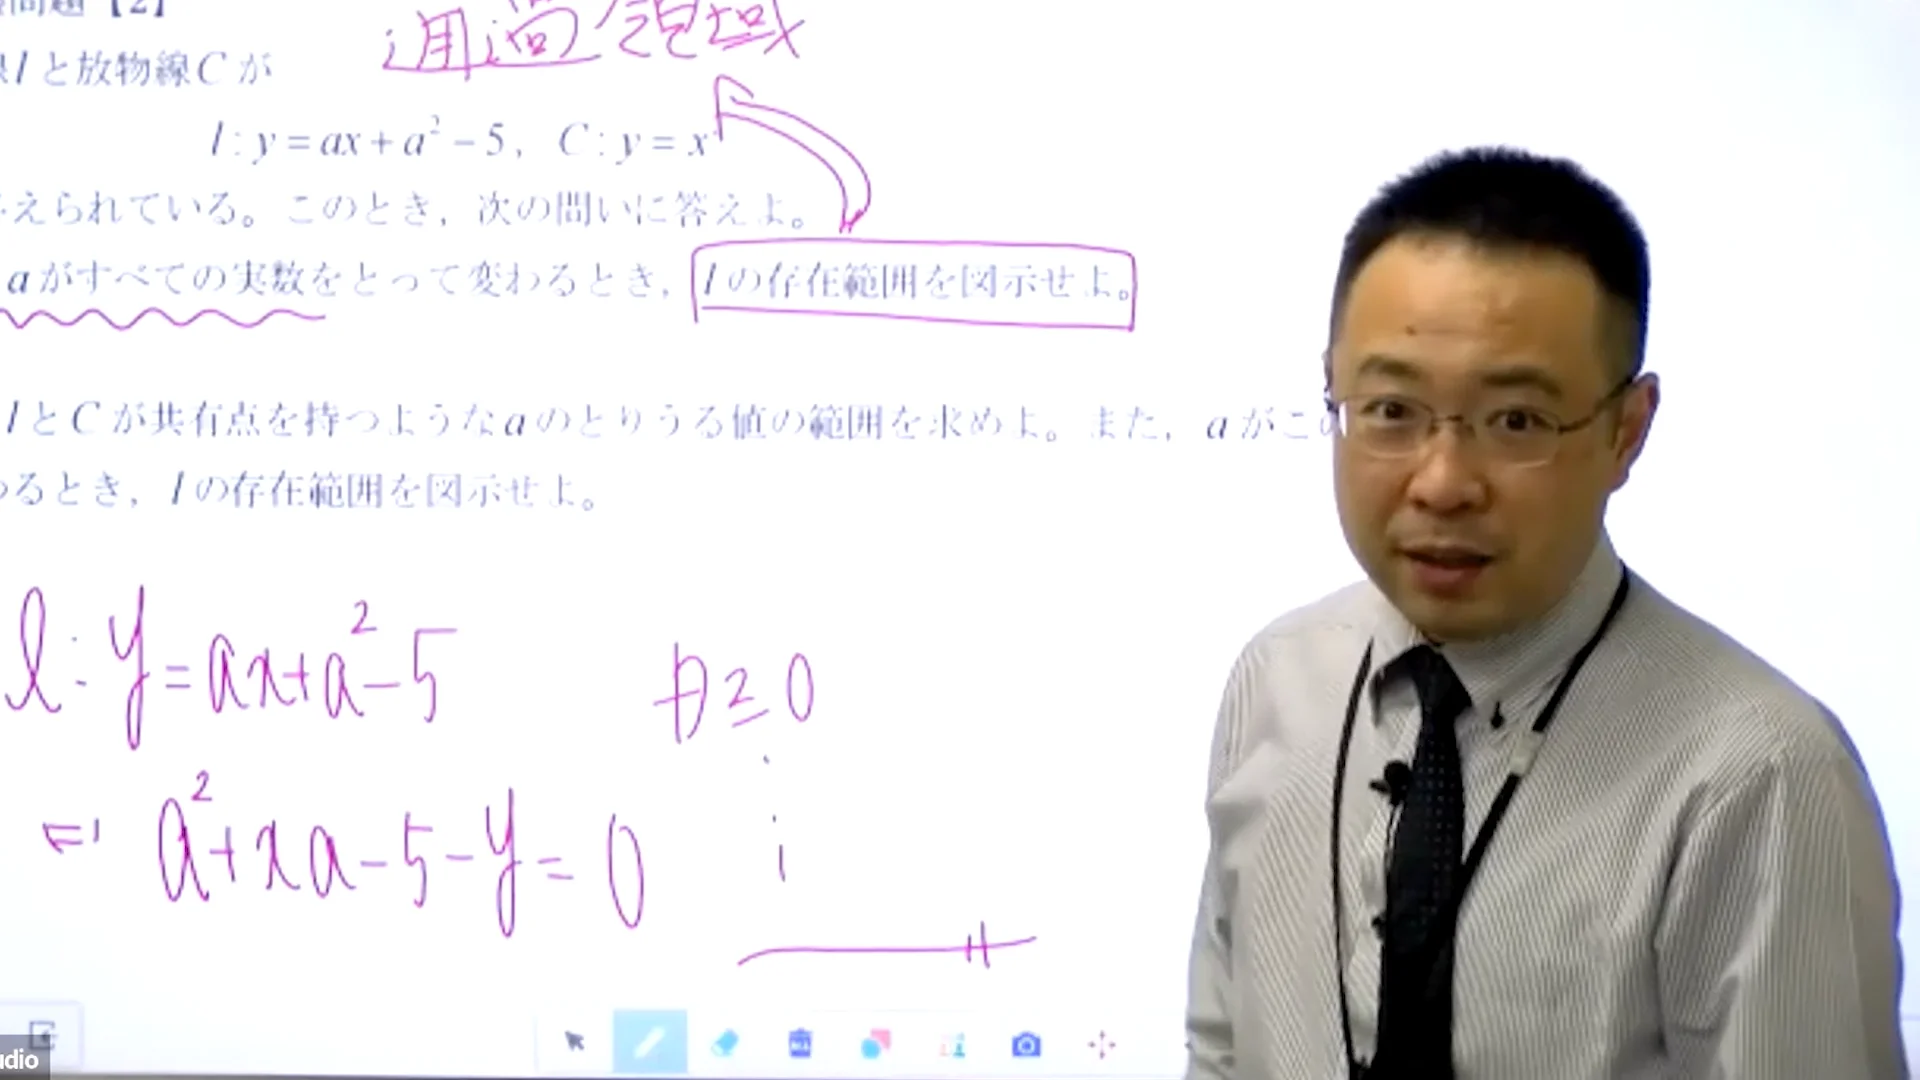 問題【2】
通過領域
lと放物線Cが
l : y = ax + a² − 5,  C : y = x²
えられている。このとき，次の問いに答えよ。
aがすべての実数をとって変わるとき，lの存在範囲を図示せよ。
lとCが共有点を持つようなaのとりうる値の範囲を求めよ。また，aがこ
るとき，lの存在範囲を図示せよ。
l : y = ax + a² − 5
D ≧ 0
⇔ a² + xa − 5 − y = 0
udio